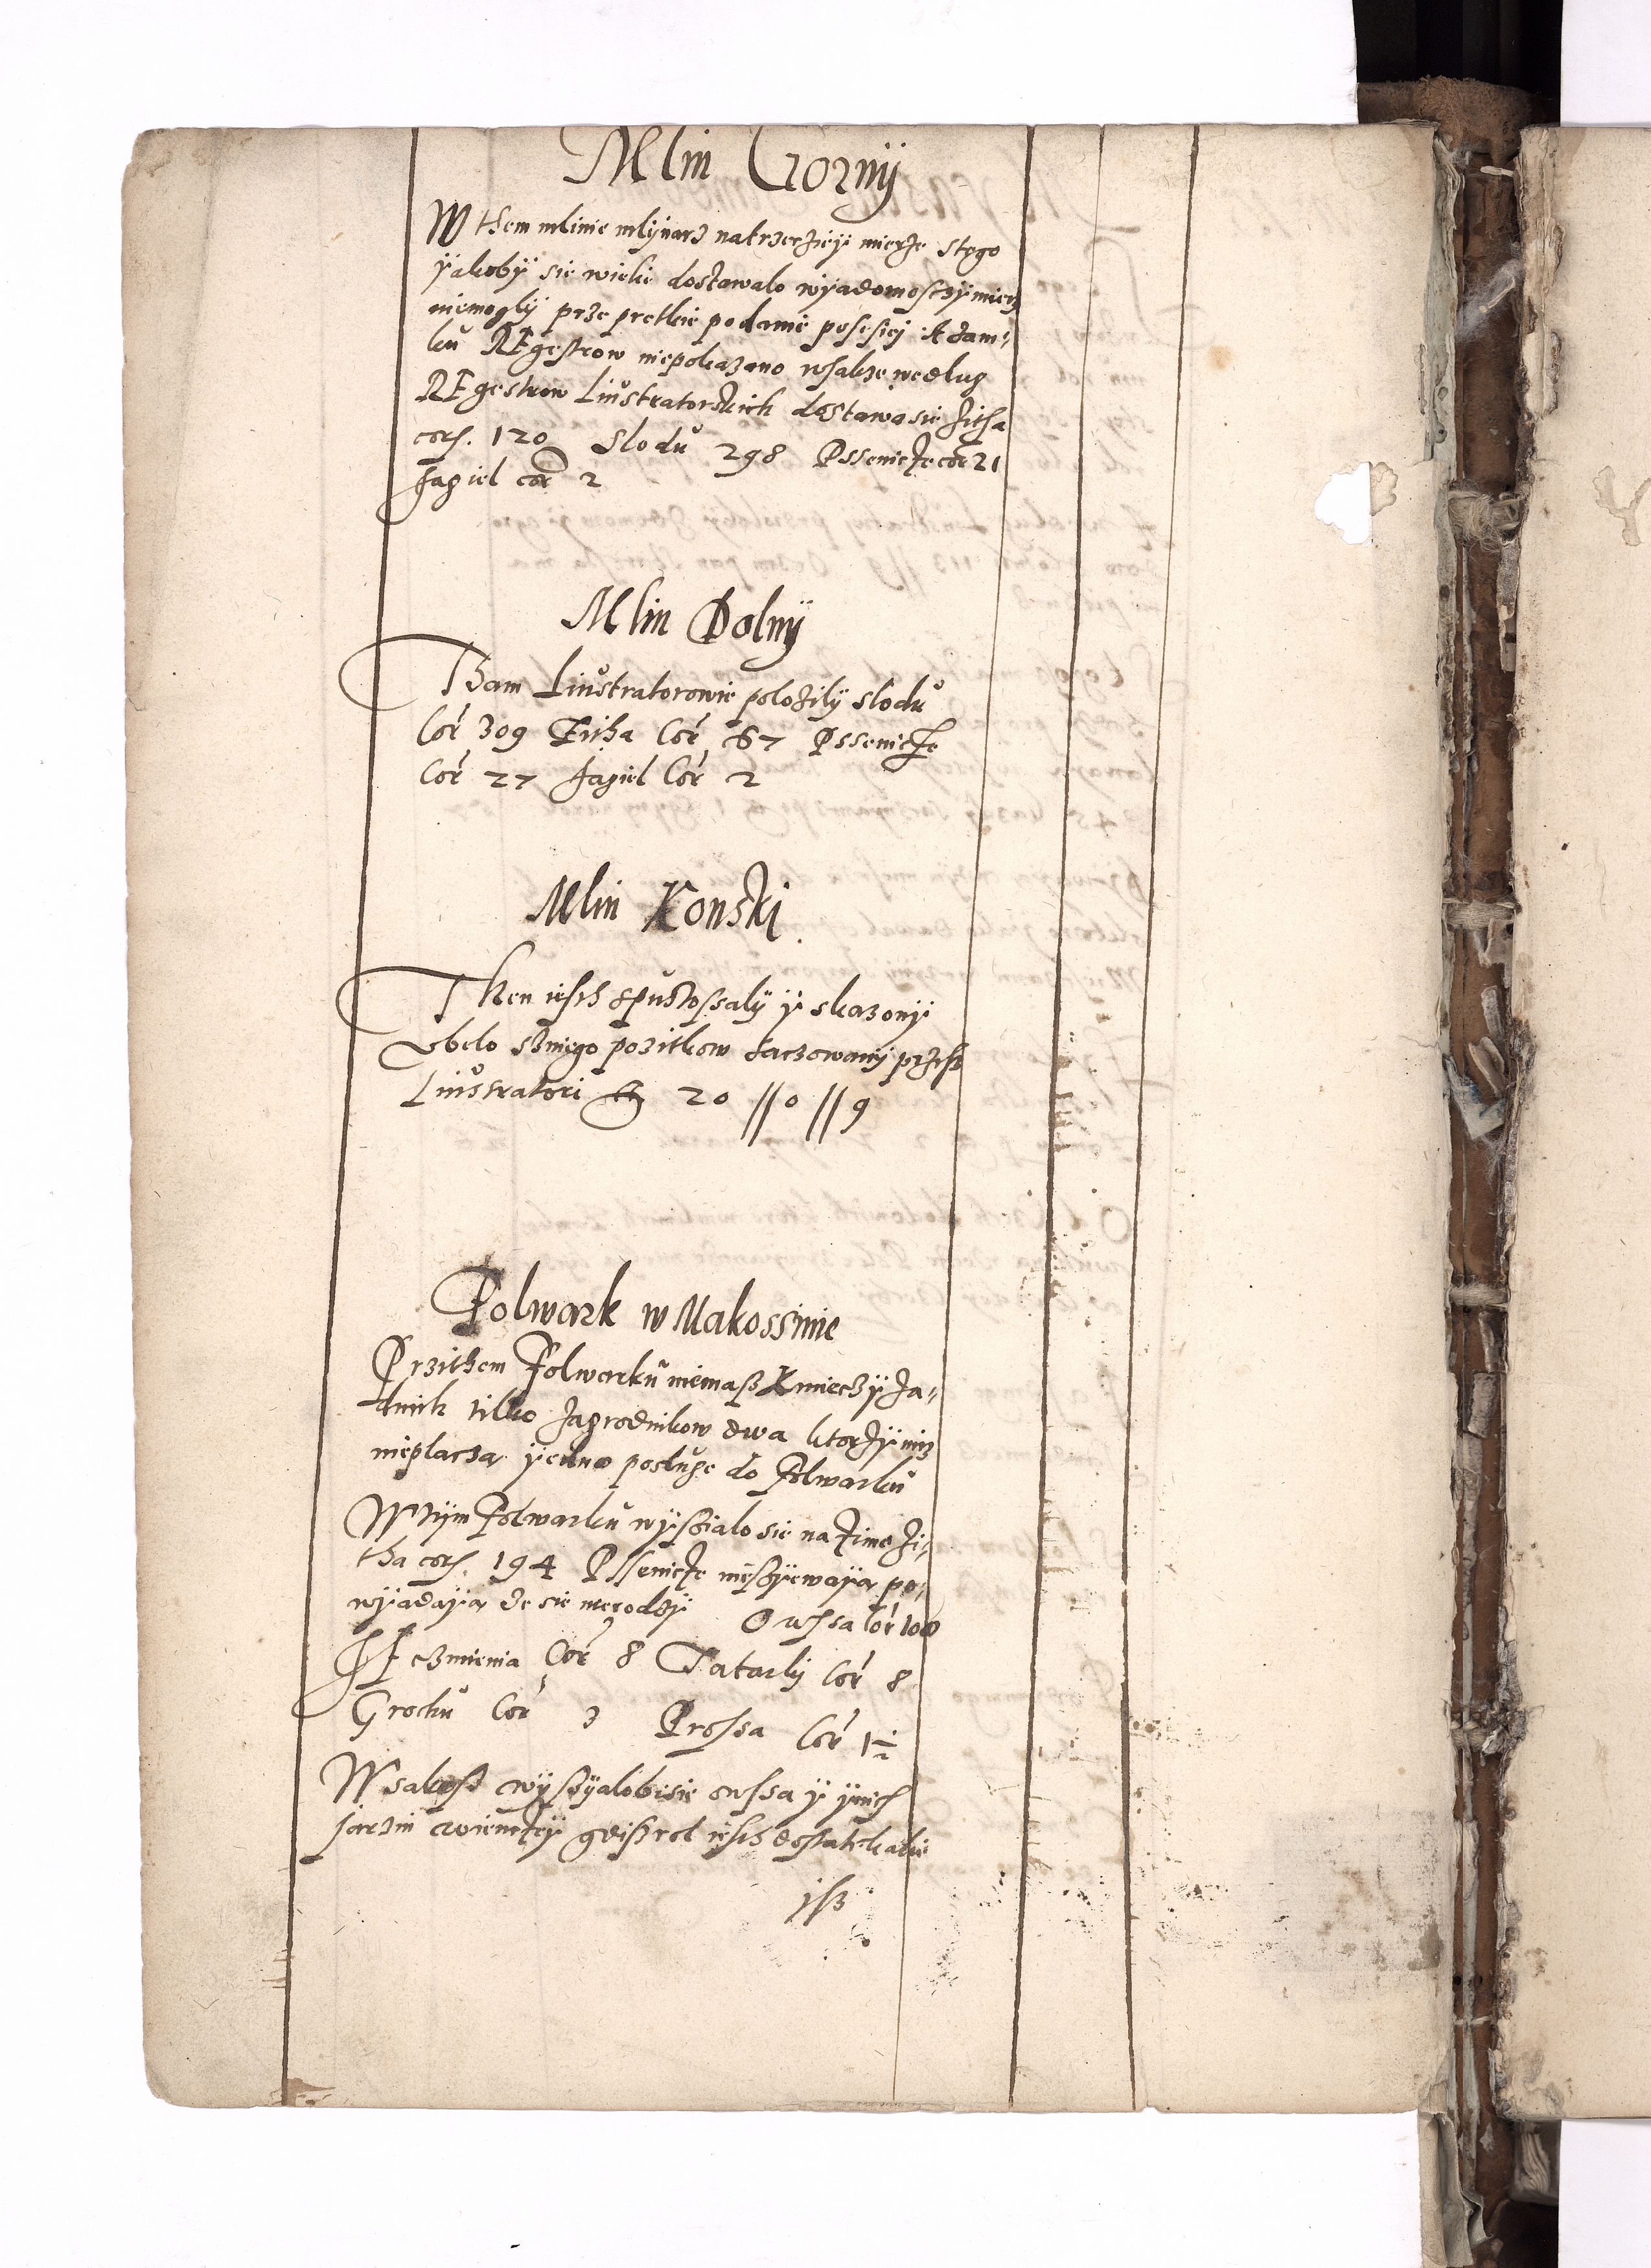 Mlin Gornÿ
W them mlinie mlÿnarz natrzecziej mierze stego
ÿakobÿ sie wiele dostawalo wÿadomosczÿ miecz
niemoglÿ prze pretkie podanie posesiej A zam:
ku REgestrow niepokazano wsakze wedlug
REgestrow Liustratorskich dostawa sie zitha
cor. 120 Slodu 298 Pssenicze cor 21
Jagiel cor 2
Mlin Dolnÿ
Tham Liustratorowie polozilÿ slodu
Cor 309 Zitha Cor 67 Pssenicze
Cor 27 Jagiel Cor 2
Mlin Konski
Then iesth spustossalÿ ÿ skazonÿ
obelo sznego pozitkow saczowanÿ przess
Liustratori 20 // 0 // 9
Folwark w Makossinie
Przithem Folwarku niemasz Kmieczÿ za:
dnich tilko zagrodnikow dwa ktorzÿ nicz
nieplacza ÿedno posluge do Folwarku
W tÿm Folwarku wÿsialo sie na zime zi:
tha cor. 194 Pssenicze niesÿewaÿa po:
wÿadaÿa ze sie nierodzÿ Owssa Cor 100
Jeczmienia Cor 8 Tatarkÿ Cor 8
Grochu Cor 3 Prossa Cor 1½
Wsakosz wÿsÿalobisie owssa ÿ ÿnich
jarzin wienczeÿ gdisz rol iesth dostatek ale
isz